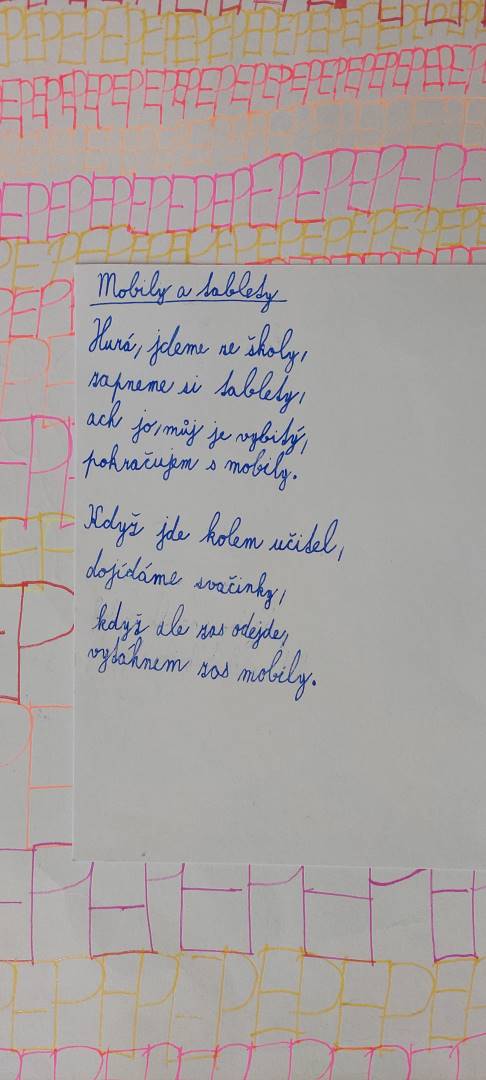 Mobily a tablety
Hurá, jdeme ze školy,
zapneme si tablety,
ach jo, můj je vybitý,
pokračujem s mobily.
Když jde kolem učitel,
dojídáme svačinky,
když ale zas odejde,
vytáhnem zas mobily.